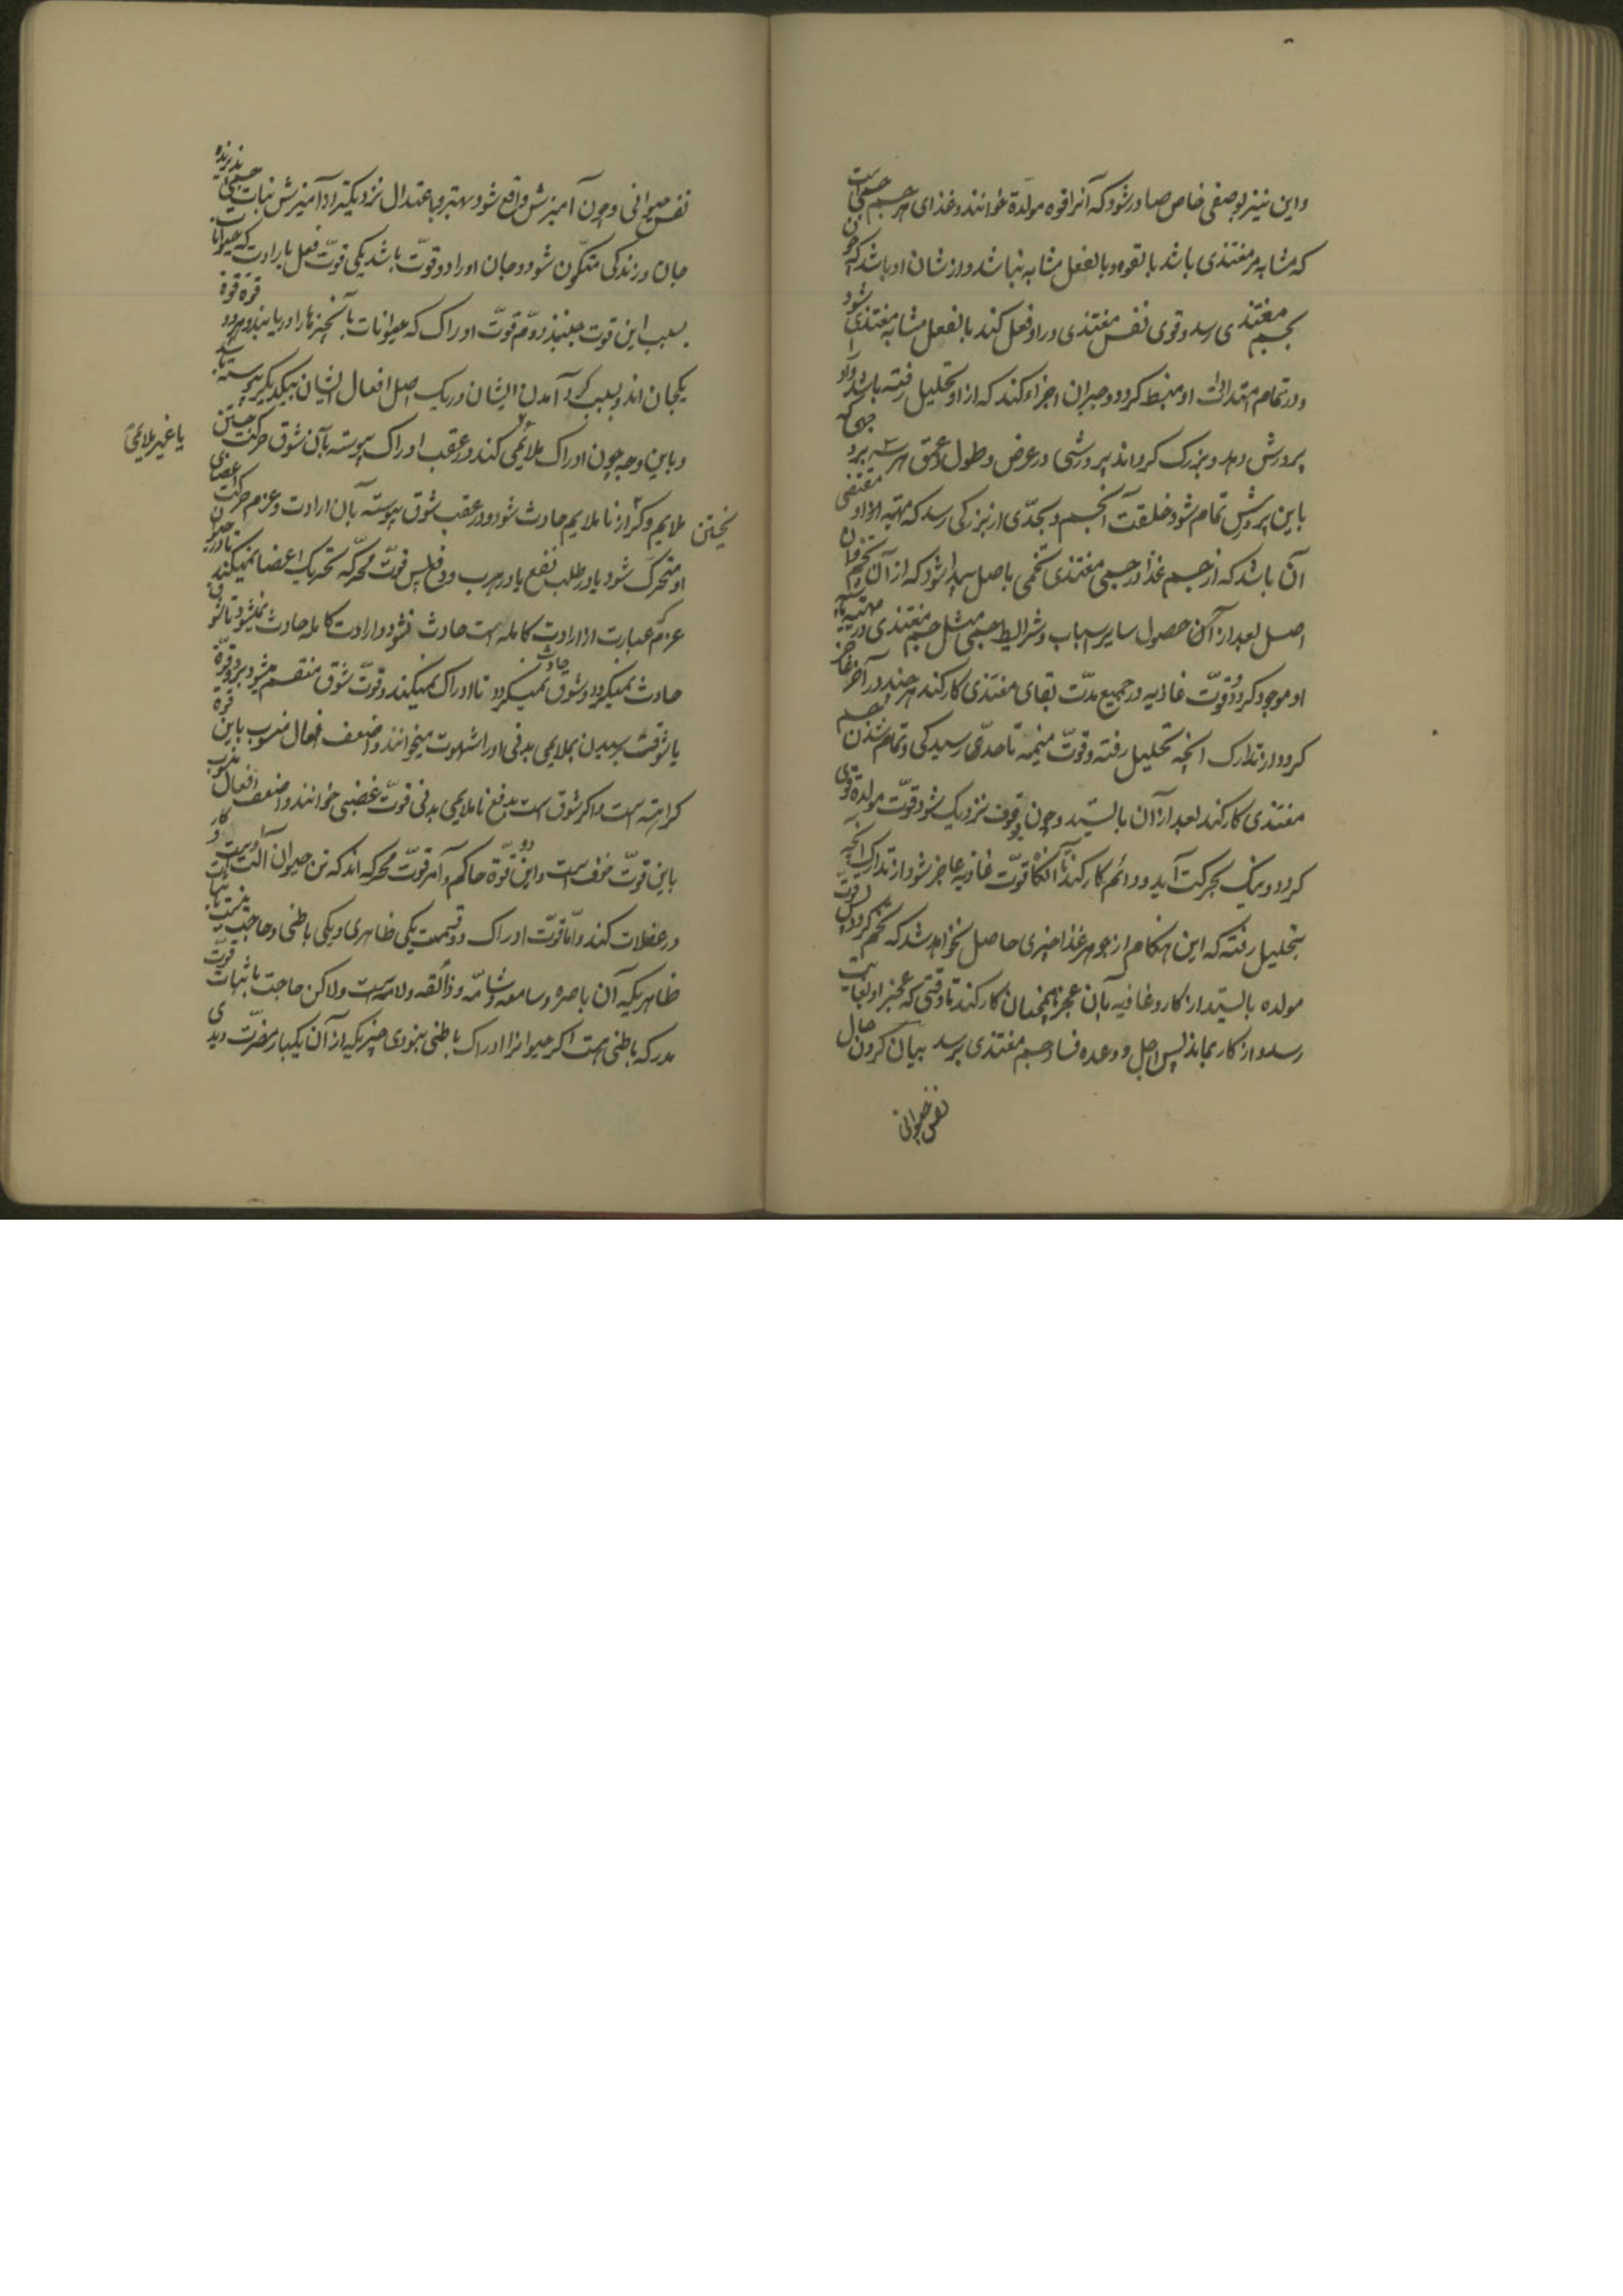 واین نیز بوصفی خاص صادر شود که آنرا قوه مولدة خوانند و غذای هر جسم جسمی است
که مشابه مر مغتذی باشد بالقوه و بالفعل مشابه نباشد و از شان او باشد که چون
بجسم مغتذی رسد و قوی نفس مغتذی در او فعل کند بالفعل مشابه مغتذی شود
و در تمام امتدادات او منبسط کردد و جبران اجزاء کند که از او تحلیل رفته باشد و او را
پرورش دهد و بزرک کرداند پرورشی در عرض و طول و عمق
باین پرورش تمام شود خلقت آنجسم و بحدّی از بزرکی رسد که
آن باشد که از جسم غذا در جسمی مغتذی تخمی باصل پیدا شود که از آن تخم
اصل بعد از آن حصول سایر اسباب و شرایط جسمی مثل جسم مغتذی در
او موجود کردد و قوّت غاذیه در جمیع مدّت بقای مغتذی کار کند هر چند در آخر عاجز
کردد از تدارک انچه تحلیل رفته و قوّت منمیه تا حدّ رسیدکی و تمام شدن جسم
مغتذی کار کند بعد از آن بایستد و چون بوقوف نزدیک شود قوّت مولده قوی
کردد و نیک بحرکت آید و دائم کار کند تا آنکاه قوّت غاذیه عاجز شود از تدارک انچه
بتحلیل رفته که این هنکام از جوهر غذا چیزی حاصل نخواهد شد که تخم کردد پس قوت
مولده بایستد از کار و غاذیه بآن عجز همچنان کار کند تا وقتی که عجز او بغایت
رسد و از کار بماند پس اجل و وعده فساد جسم مغتذی برسد بیان کردن حال
نفس حیوانی
نفس حیوانی و چون آمیزش واقع شود بهتر و باعتدال نزدیکتر از آمیزش نبات جسمی پذیرنده
جان و زندکی متکوّن شود و جان او را دو قوّت باشد یکی قوّت فعل بارادت که حیوانات
بسبب این قوت جنبند دوّم قوّت ادراک که حیوانات بآن چیزها را دریابند و هر دو قوّه
یکجان اند و بسبب کرد آمدن ایشان در یک اصل افعال ایشان بیکدیکر پیوسته
و باین وجه چون ادراک ملایمی کند در عقب ادراک پیوسته بآن شوق حرکت جستن
یا غیر ملایمی
ملایم و کر از ناملایم حادث شود و در عقب شوق پیوسته بآن ارادت و عزم حرکت اعضای
او متحرک شود یا در طلب نفع یا در هرب و دفع پس قوّت محرّکه تحریک اعضا نمیکند تا در حیوان
عزم که عبارت از ارادت کامله است حادث نشود و ارادت کامله حادث نمیشود تا شوقی
حادث نمیکردد و شوق حادث نمیکردد تا ادراک نمیکند و قوّت شوق منقسم میشود بدو قوّة
یا شوقست برسیدن بملایمی بدنی او را شهوت میخوانند و اضعف افعال منسوب باین قوة
کراهت است و اکر شوق است بدفع ناملایمی بدنی قوّت غضبی خوانند و اضعف افعال منسوب
باین قوّت خوف است و این دو قوّة حاکم و آمر قوّت محرکه اند که تن حیوان آلت اوست و کار
در عضلات کند و امّا قوّت ادراک دو قسمت یکی ظاهری و یکی باطنی و حاجت نیست باثبات
ظاهر یکه آن باصره و سامعه و شامّه و ذائقه و لامسه است ولاکن حاجت باثبات قوّت
مدرکه باطنی است اکر حیوانرا ادراک باطنی نبودی چیزیکه از آن یکبار مضرّت دیدی